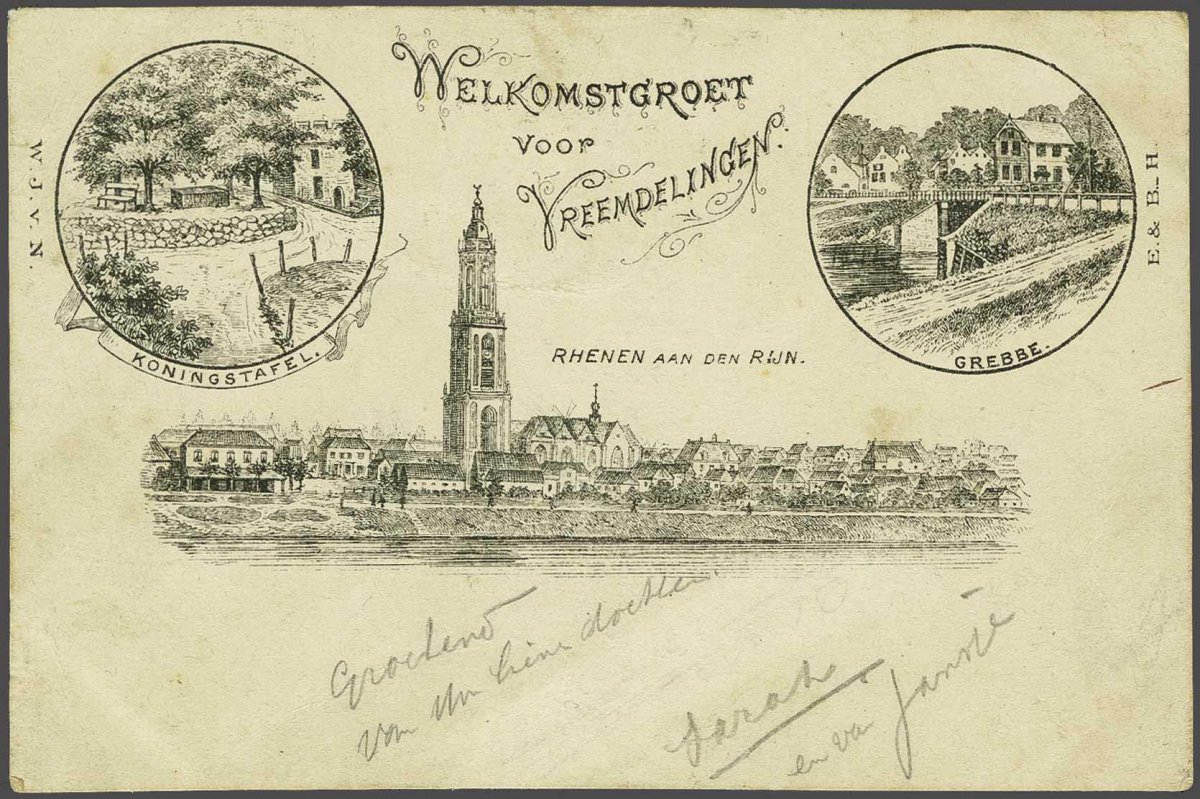 WELKOMSTGROET
VOOR
VREEMDELINGEN.
W. J. V. N.
E. & B. H.
KONINGSTAFEL.
GREBBE.
RHENEN AAN DEN RIJN.
Groetend
van Uw
Sarah
en van